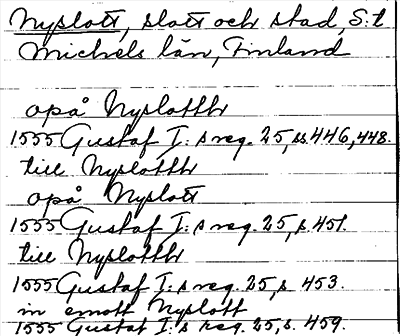 Nyslott, slott och stad, S:t
Michels län, Finland
opå Nyslotth
1555 Gustaf I:s reg. 25, ss. 446, 448.
till Nyslotth
opå Nyslott
1555 Gustaf I:s reg. 25, s. 451.
till Nyslotth
1555 Gustaf I:s reg. 25, s. 453.
in emott Nyslott
1555 Gustaf I:s reg. 25, s. 459.